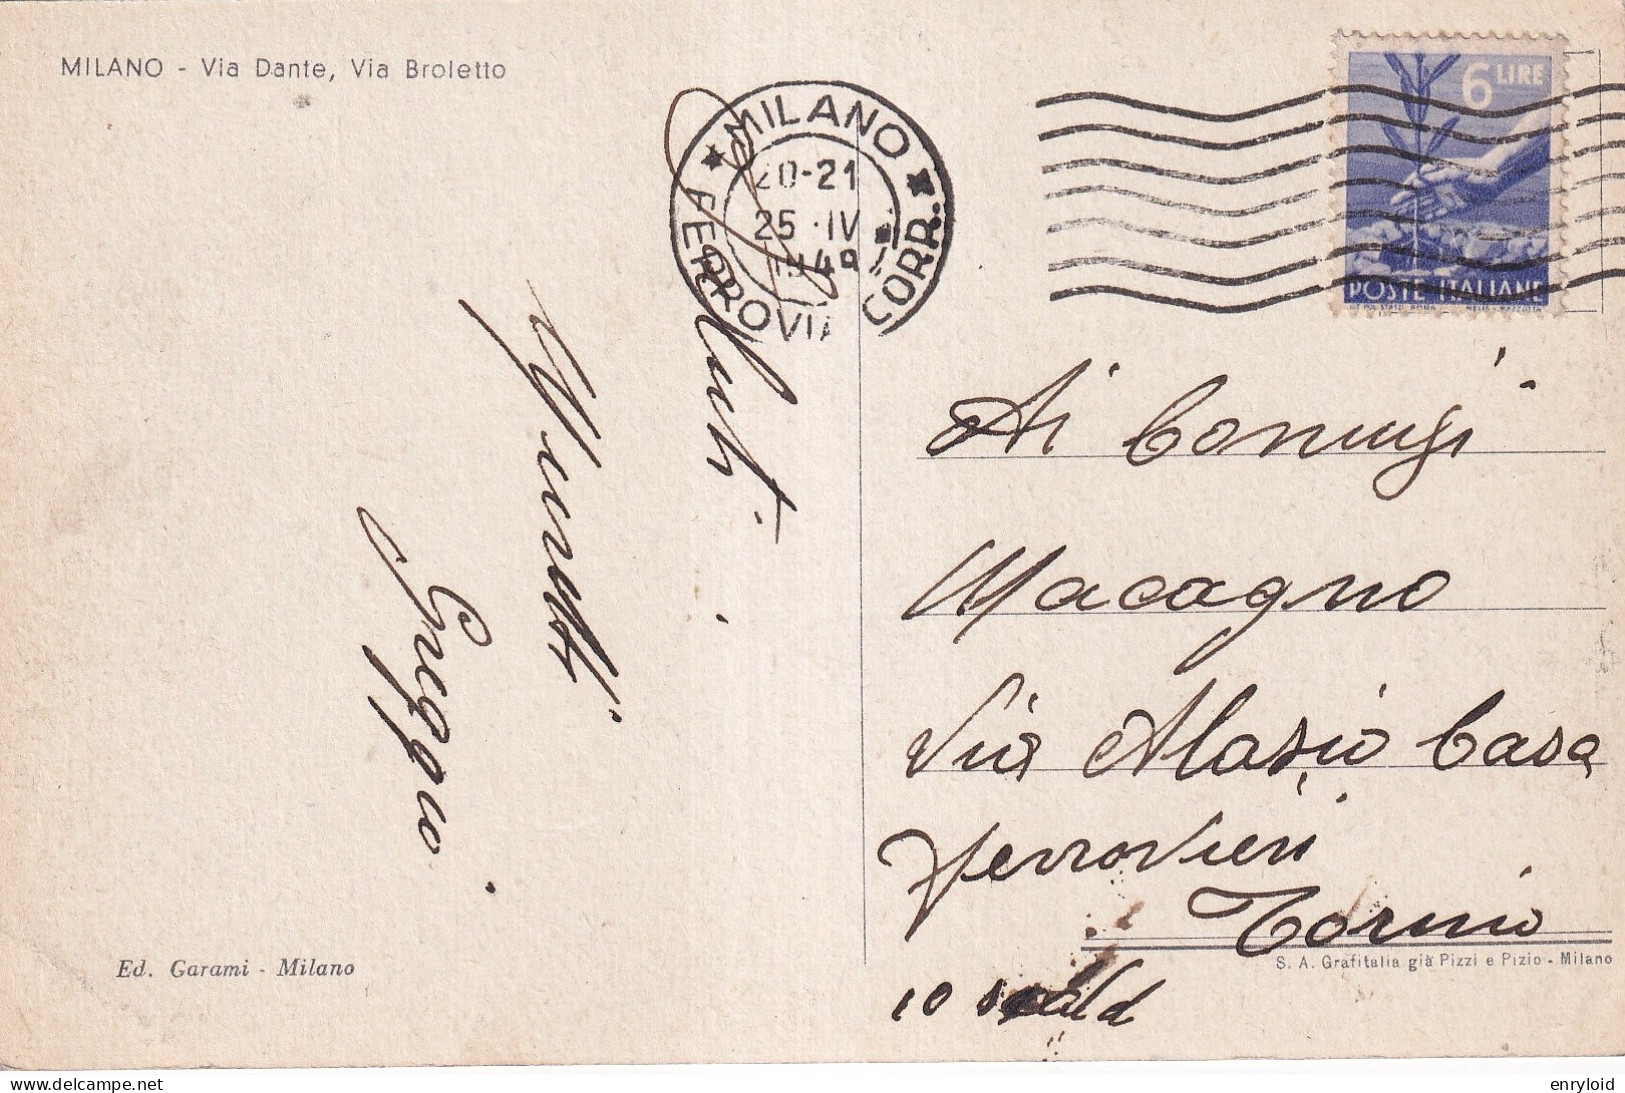 MILANO - Via Dante, Via Broletto
MILANO
20-21
25 · IV
FERROVIA CORR.
6 LIRE
POSTE ITALIANE
Saluti
Greggio
Ai Coniugi
Macagno
Via Alasio Casa
ferrovieri
Torino
10
Ed. Garami - Milano
S. A. Grafitalia già Pizzi e Pizio - Milano
enryloid